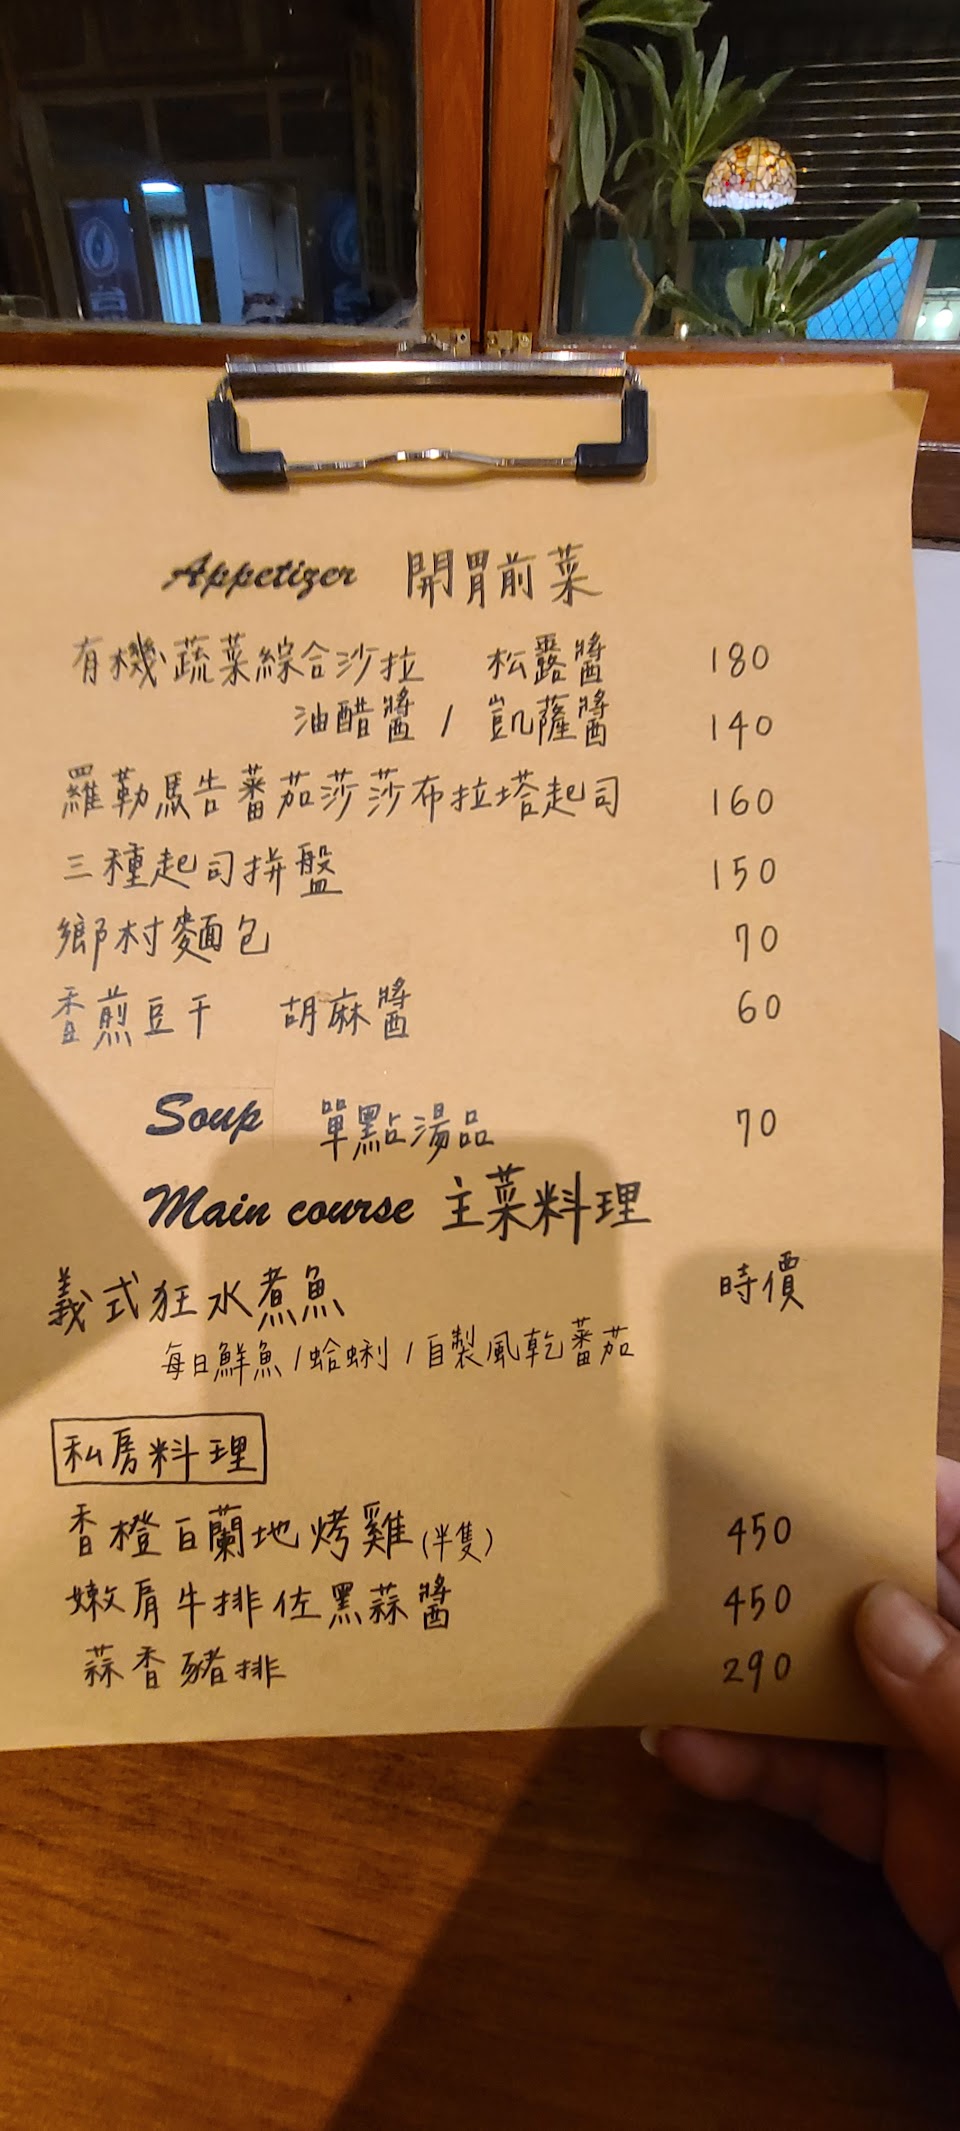 Appetizer 開胃前菜
有機蔬菜綜合沙拉 松露醬 180
油醋醬 / 凱薩醬 140
羅勒馬告蕃茄莎莎布拉塔起司 160
三種起司拼盤 150
鄉村麵包 70
香煎豆干 胡麻醬 60
Soup 單點湯品 70
Main course 主菜料理
義式狂水煮魚 時價
每日鮮魚/蛤蜊/自製風乾蕃茄
私房料理
香橙白蘭地烤雞(半隻) 450
嫩肩牛排佐黑蒜醬 450
蒜香豬排 290